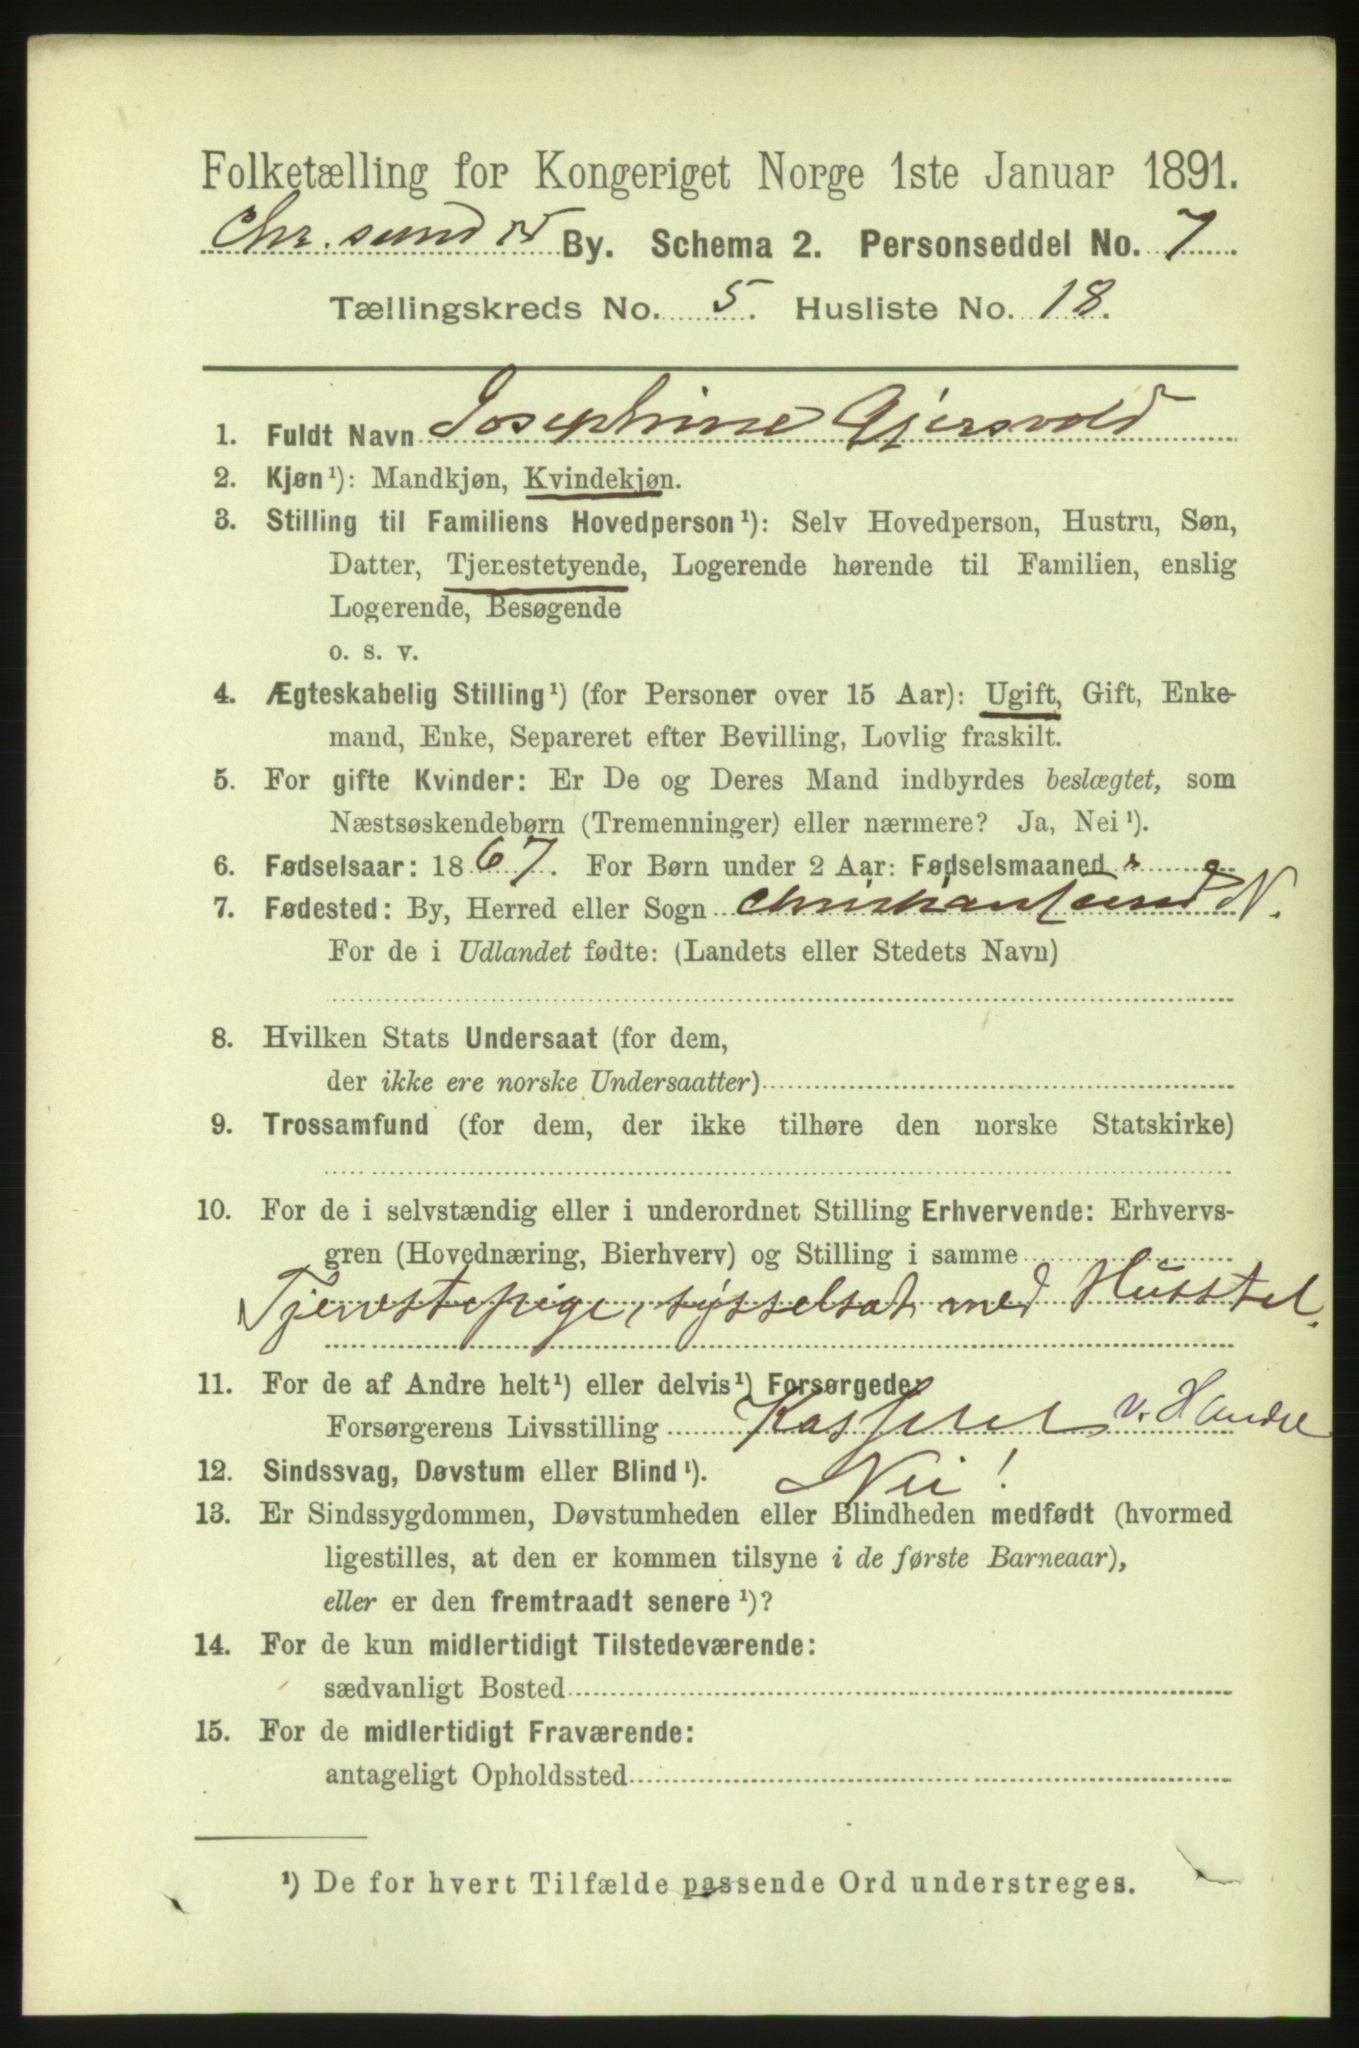 Folketælling for Kongeriget Norge 1ste Januar 1891.
Chr. sund N By. Schema 2. Personseddel No. 7
Tællingskreds No. 5. Husliste No. 18.
1. Fuldt Navn Josephine Gjersvold
2. Kjøn¹): Mandkjøn, Kvindekjøn.
3. Stilling til Familiens Hovedperson¹): Selv Hovedperson, Hustru, Søn,
Datter, Tjenestetyende, Logerende hørende til Familien, enslig
Logerende, Besøgende
o. s. v.
4. Ægteskabelig Stilling¹) (for Personer over 15 Aar): Ugift, Gift, Enke-
mand, Enke, Separeret efter Bevilling, Lovlig fraskilt.
5. For gifte Kvinder: Er De og Deres Mand indbyrdes beslægtet, som
Næstsøskendebørn (Tremenninger) eller nærmere? Ja, Nei¹).
6. Fødselsaar: 1867. For Børn under 2 Aar: Fødselsmaaned
7. Fødested: By, Herred eller Sogn Christiansund N.
For de i Udlandet fødte: (Landets eller Stedets Navn)
8. Hvilken Stats Undersaat (for dem,
der ikke ere norske Undersaatter)
9. Trossamfund (for dem, der ikke tilhøre den norske Statskirke)
10. For de i selvstændig eller i underordnet Stilling Erhvervende: Erhvervs-
gren (Hovednæring, Bierhverv) og Stilling i samme
Tjenestepige, sysselsat med Husstel.
11. For de af Andre helt¹) eller delvis¹) Forsørgede:
Forsørgerens Livsstilling Kasserer v. Handel
12. Sindssvag, Døvstum eller Blind¹). Nei!
13. Er Sindssygdommen, Døvstumheden eller Blindheden medfødt (hvormed
ligestilles, at den er kommen tilsyne i de første Barneaar),
eller er den fremtraadt senere¹)?
14. For de kun midlertidigt Tilstedeværende:
sædvanligt Bosted
15. For de midlertidigt Fraværende:
antageligt Opholdssted
¹) De for hvert Tilfælde passende Ord understreges.